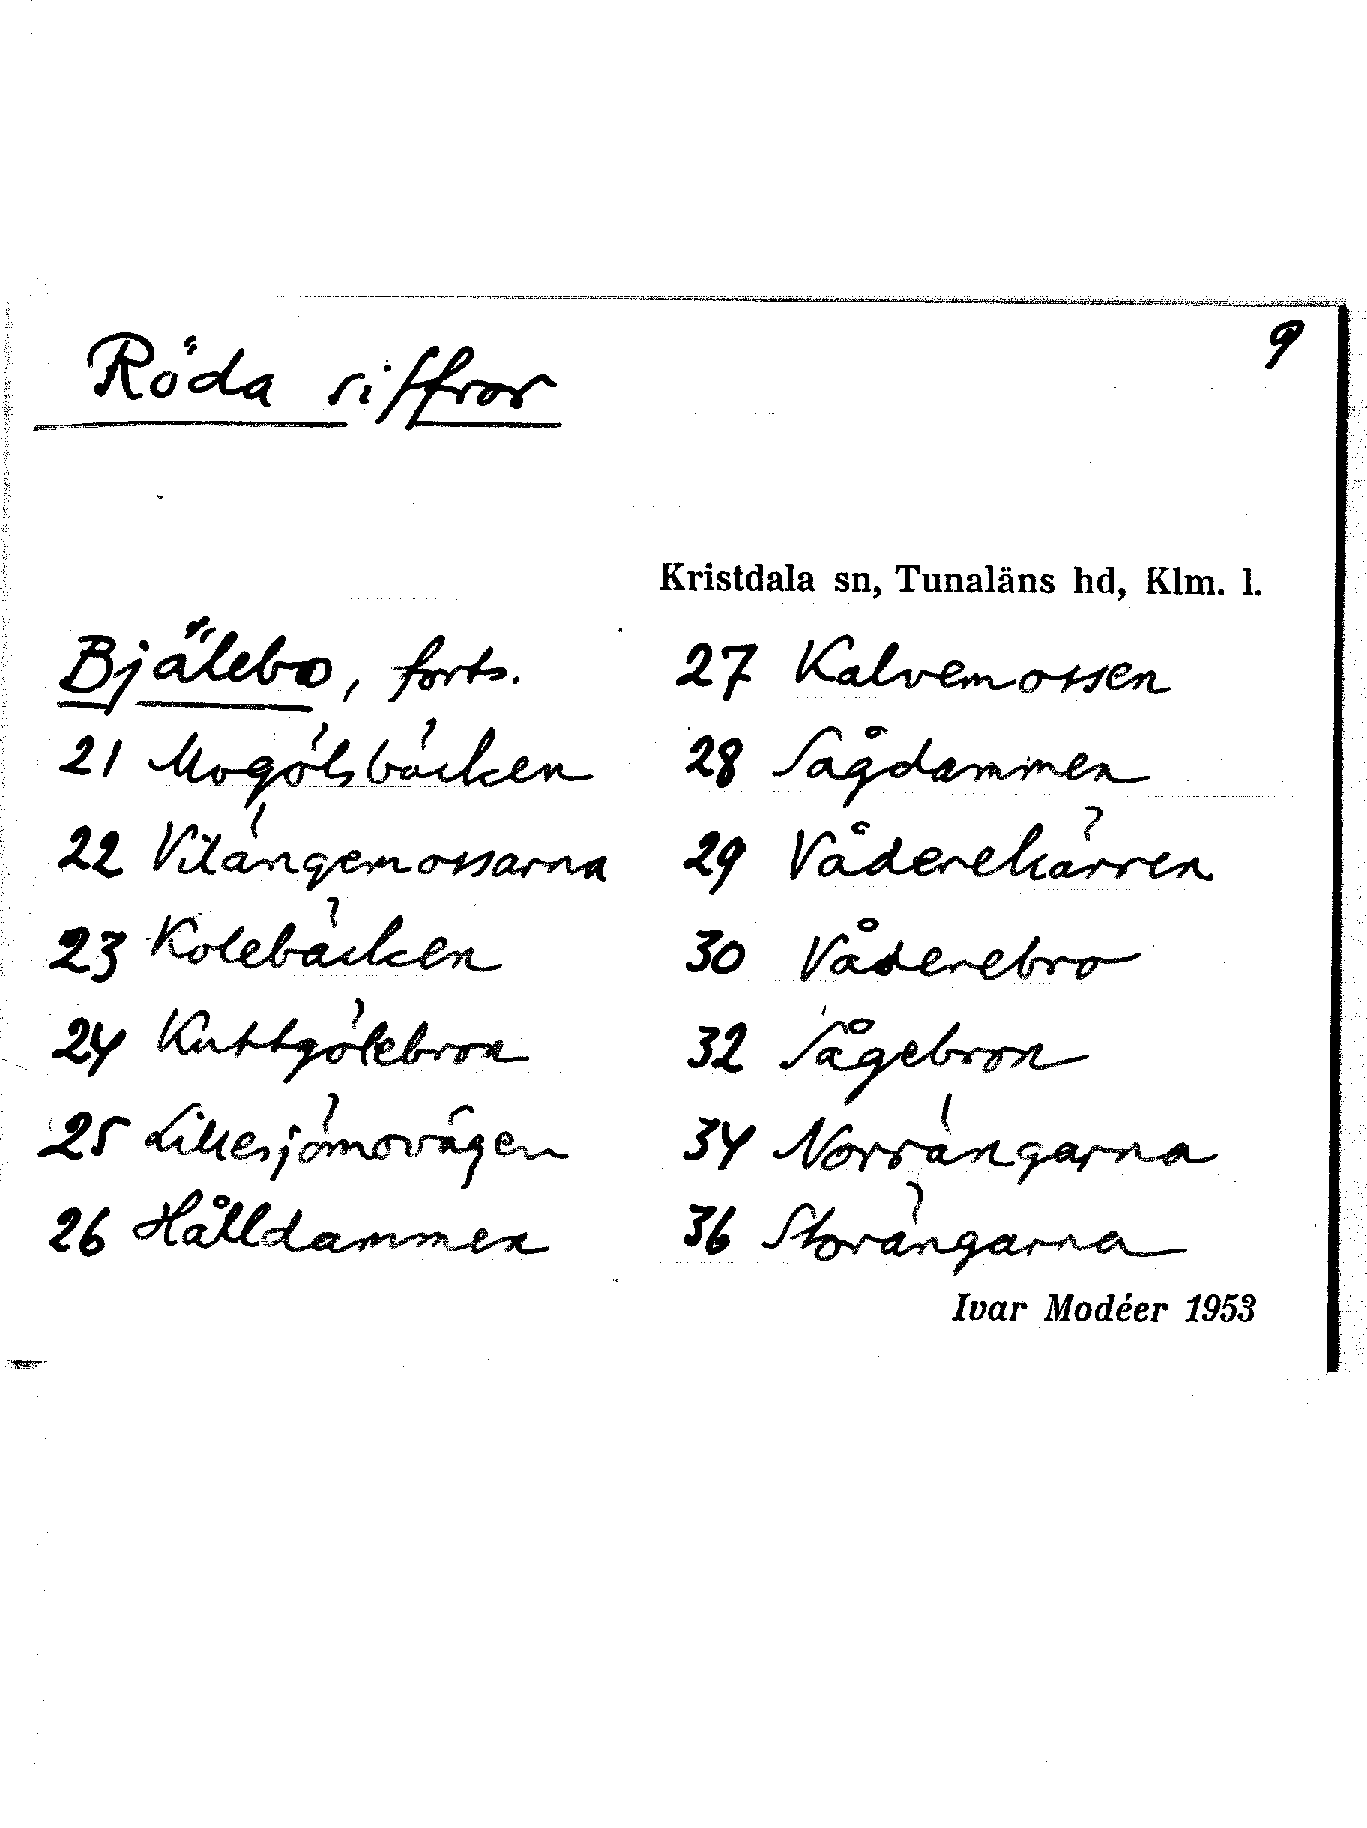 Röda siffror
9
Kristdala sn, Tunaläns hd, Klm. l.
Bjälebo, forts.
21 Mogölsbäcken
22 Vitängemossarna
23 Kolebäcken
24 Kuttgölebron
25 Lillesjömovägen
26 Hålldammen
27 Kalvemossen
28 Sågdammen
29 Våderekärren
30 Våderebro
32 Sågebron
34 Norrängarna
36 Storängarna
Ivar Modéer 1953